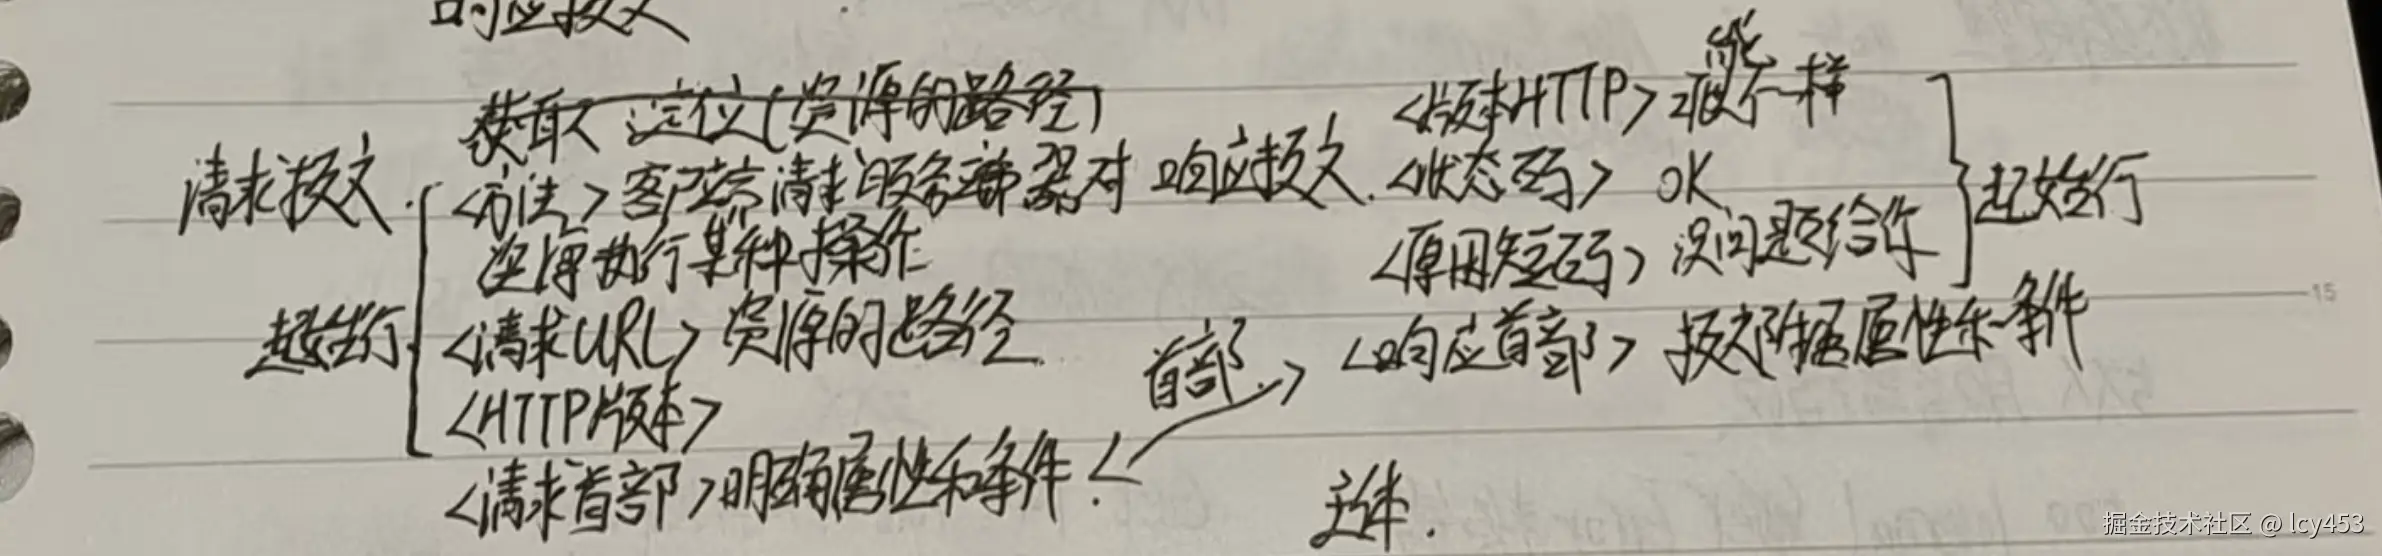 响应报文
获取 定位(资源的路径)
请求报文. <方法> 客户端请求服务器对
资源执行某种操作
起始行. <请求URL> 资源的路径
<HTTP版本>
<请求首部> 明确属性和条件.
首部
响应报文. <版本HTTP> 可能不一样
<状态码> OK
<原因短码> 没问题给你
起始行
<响应首部> 属性和条件
主体.
15
掘金技术社区 @ lcy453